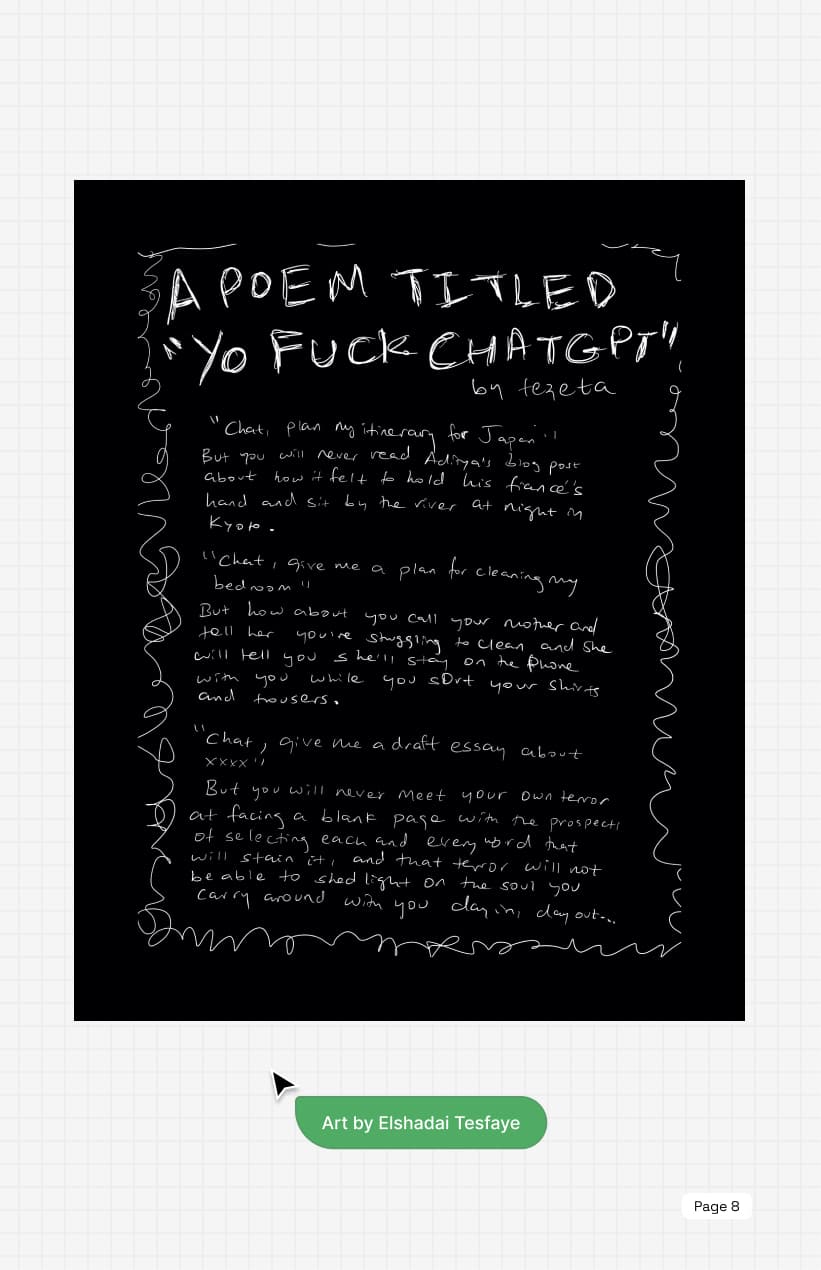 A POEM TITLED
"YO FUCK CHATGPT"
by tezeta
"Chat, plan my itinerary for Japan"
But you will never read Aditya's blog post
about how it felt to hold his fiancé's
hand and sit by the river at night in
Kyoto.
"Chat, give me a plan for cleaning my
bedroom"
But how about you call your mother and
tell her you're struggling to clean and she
will tell you she'll stay on the phone
with you while you sort your shirts
and trousers.
"Chat, give me a draft essay about
xxxx"
But you will never meet your own terror
at facing a blank page with the prospect
of selecting each and every word that
will stain it, and that terror will not
be able to shed light on the soul you
carry around with you day in, day out...
Art by Elshadai Tesfaye
Page 8